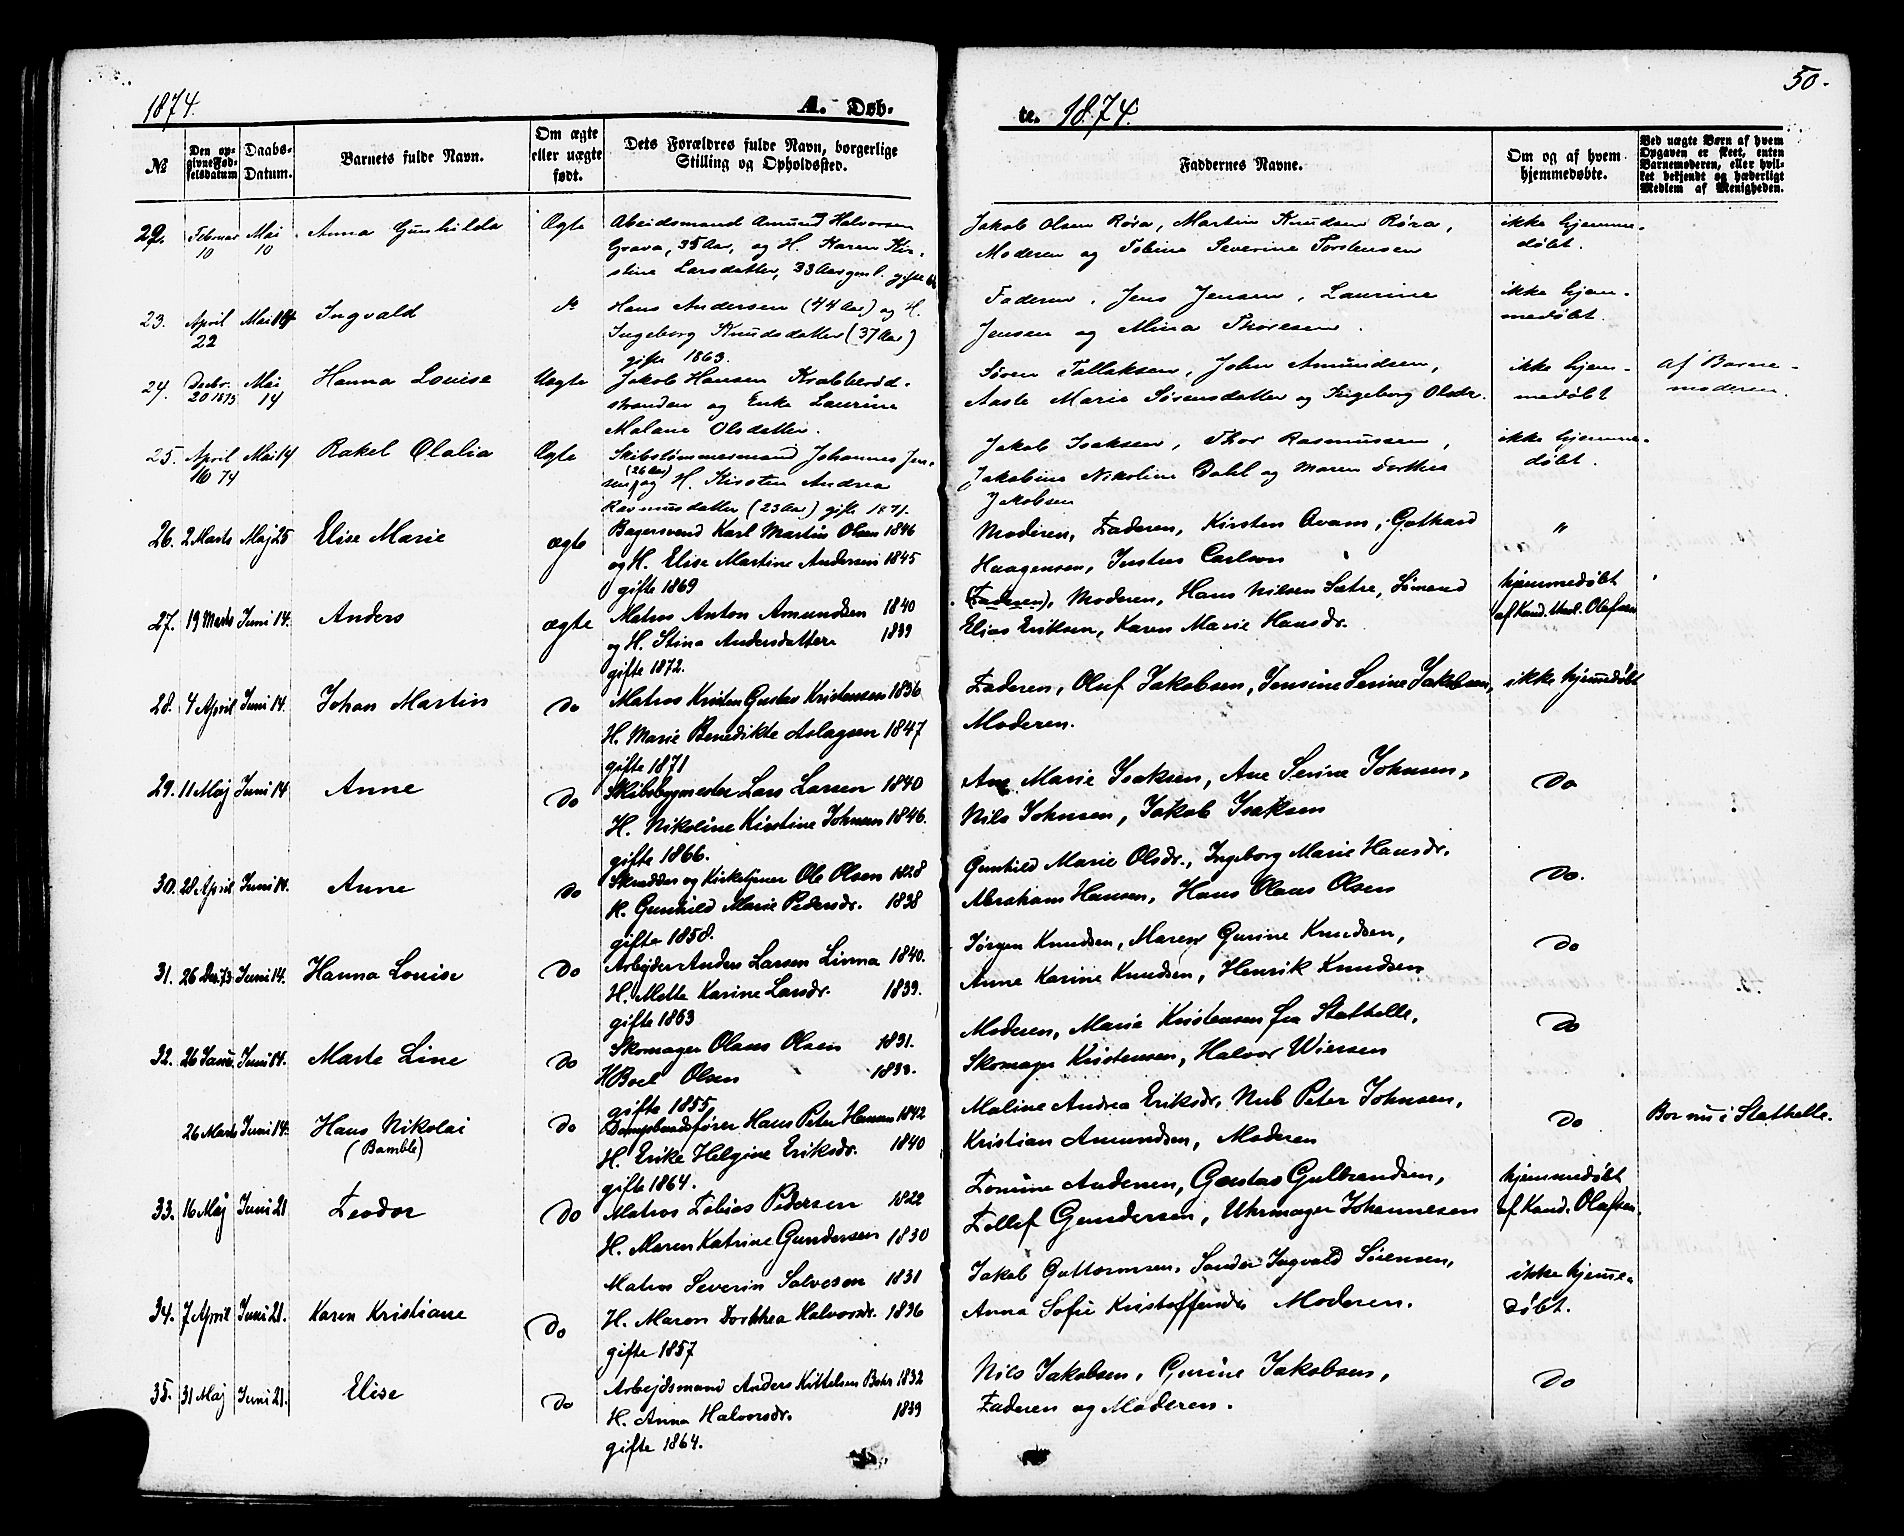 1874.
A. Døb-
№
Den op-
givne Fød-
selsdatum
Daabs-
Datum.
Barnets fulde Navn.
Om ægte
eller uægte
født.
Dets Forældres fulde Navn, borgerlige
Stilling og Opholdssted.
22. Februar 10 Mai 10 Anna Gunhilda Ægte Abeidsmand Amund Halvorsen
Grava, 35 Aar, og H. Karen Kir-
stine Larsdatter, 33 Aar gml. gifte
23. April 22 Mai 14 Ingvald Hans Andersen (44 Aar) og H.
Ingeborg Knudsdatter (37 Aar)
gifte 1863.
24. Decbr. 20 1873 Mai 14 Hanna Louise Uægte Jakob Hansen Krabberød-
stranden og Enke Laurine
Malane Olsdatter.
25. April 16 74 Mai 14 Rakel Olalia Ægte Skibstømmermand Johannes Jen-
sen (26 Aar) og H. Kirsten Andrea
Rasmusdatter (23 Aar) gift 1871.
26. 2 Marts Maj 25 Elise Marie ægte Bagersvend Karl Martin Olsen 1846
og H. Elise Martine Andersen 1845
gifte 1869
27. 19 Marts Juni 14. Anders ægte Matros Anton Amundsen 1840
og H. Stina Andersdatter 1839
gifte 1872.
28. 4 April Juni 14. Johan Martin Do Matros Kristen Gustav Kristensen 1836
H. Marie Benedikte Aslagsen 1847
gifte 1871
29. 11 Maj Juni 14 Anne Do Skibsbygmester Lars Larsen 1840
H. Nikoline Kirstine Johnsen 1846.
gifte 1866.
30. 28 April Juni 14. Anne Do Skrædder og Kirketjener Ole Olsen 1828
H. Gunhild Marie Pedersdr. 1838
gifte 1858.
31. 26 Dec. 73. Juni 14. Hanna Louise Do Arbejder Anders Larsen Linna 1840.
H. Mette Karine Larsdr. 1839.
gifte 1863
32. 26 Janu. Juni 14. Marte Line Do Skomager Olaus Olsen 1831.
H Boel Olsen
gifte 1855
26 Marts Juni 14. Hans Nikolai Do Dampbaadsfører Hans Peter Hansen 1842
(Bamble) H. Erike Helgine Eriksdr. 1840
gifte 1864.
33. 16 Maj Juni 21 Teodor Do Matros Tobias Pedersen 1822
H. Maren Katrine Gundersen 1830
Matros Severin Salvesen 1831
34. 7 April Juni 21. Karen Kristiane Do H. Maren Dorthea Halvorsdr. 1836
gifte 1857
35. 31 Maj Juni 21. Elise Do Arbejdsmand Anders Kittelsen 1832
H. Anna Halvorsdr. 1839
gifte 1864.
te. 1874.
50.
Faddernes Navne.
Om og af hvem
hjemmedøbte.
Ved uægte Børn af hvem
Opgaven er skeet, enten
Barnemoderen, eller hvil-
ket bekjendt og hæderligt
Medlem af Menigheden.
Jakob Olsen Røra, Martin Knudsen Røra, ikke hjemme-
Moderen og Tobine Severine Torstensen døbt.
Faderen, Jens Jensen, Laurine ikke hjem-
Jensen og Mina Thoresen. medøbt.
Søren Tallaksen, John Amundsen, ikke hjem- af Barne-
Aaste Marie Sørensdatter og Ingeborg Olsdr. medøbt moderen.
Jakob Isaksen, Thor Rasmussen, ikke hjemme-
Jakobine Nikoline Dahl og Maren Dorthea døbt.
Jakobsen
Moderen, Faderen, Kirsten Avam, Gothard "
Haagensen, Justus Carlson
(Faderen), Moderen, Hans Nilsen Sætre, Simend hjemmedøbt
Elias Eriksen, Karen Marie Hansdr. af Kand. Olafsen
Faderen, Oluf Jakobsen, Jensine Serine Jakobsen, ikke hjemmedøbt
Moderen.
Ane Marie Isaksen, Ane Serine Johnsen, Do
Nils Johnsen, Jakob Isaksen
Gunhild Marie Olsdr., Ingeborg Marie Hansdr. Do.
Abraham Hansen, Hans Olaus Olsen
Jørgen Knudsen, Maren Gurine Knudsen, Do
Anne Karine Knudsen, Henrik Knudsen
Moderen, Marie Kristensen fra Stathelle, Do
Skomager Kristensen, Halvor Wiersen
Maline Andrea Eriksdr. Peter Johnsen, Do Bor nu i Stathelle.
Kristian Amundsen, Moderen
Andersen, Gustav Gulbrandsen, hjemmedøbt
Tellef Gundersen, Uhrmager Johannesen af Kand. Olafsen.
Jakob Guttormsen, Sander Ingvald Sørensen, ikke hjemme-
Anna Sofie Kristoffersdr. Moderen. døbt.
Nils Jakobsen, Gurine Jakobsen, Do
Faderen og Moderen.